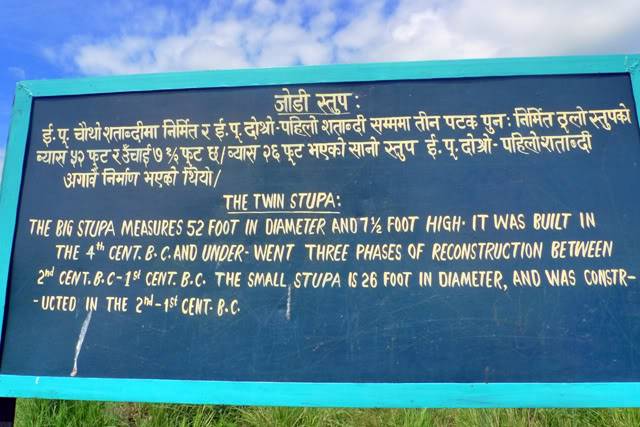 जोडी स्तुप :
ई. पू. चौथो शताब्दीमा निर्मित र ई. पू. दोश्रो-पहिलो शताब्दी सम्ममा तीन पटक पुनः निर्मित ठूलो स्तुपको
व्यास ५२ फूट र उँचाई ७ १/२ फूट छ/ व्यास २६ फूट भएको सानो स्तुप ई. पू. दोश्रो- पहिलो शताब्दी
अगावै निर्माण भएको थियो/
THE TWIN STUPA:
THE BIG STUPA MEASURES 52 FOOT IN DIAMETER AND 7½ FOOT HIGH. IT WAS BUILT IN
THE 4th CENT. B.C. AND UNDER-WENT THREE PHASES OF RECONSTRUCTION BETWEEN
2nd CENT. B.C-1st CENT. B.C. THE SMALL STUPA IS 26 FOOT IN DIAMETER, AND WAS CONSTR-
-UCTED IN THE 2nd-1st CENT. B.C.